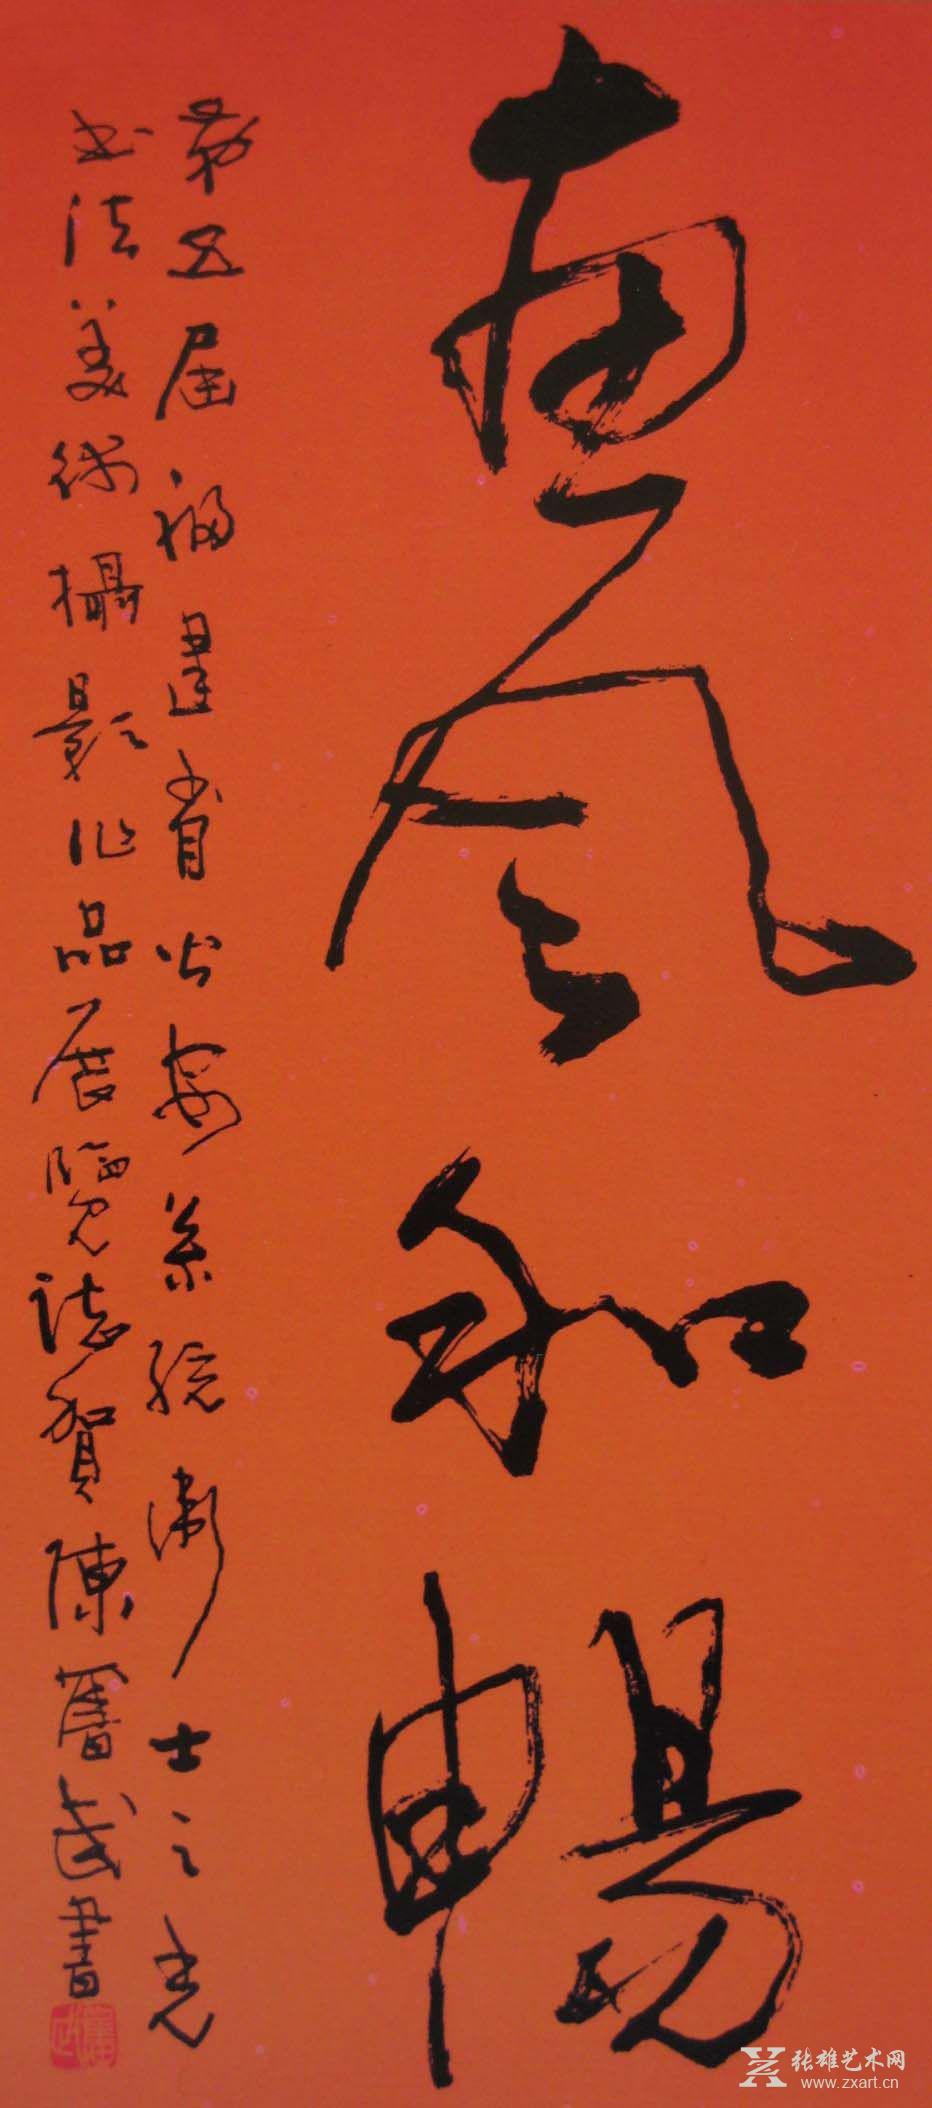 惠風和暢
第五届福建省公安系统衛士之光
书法美術攝影作品展覽誌賀陳奮武書
张雄艺术网
www.zxart.cn